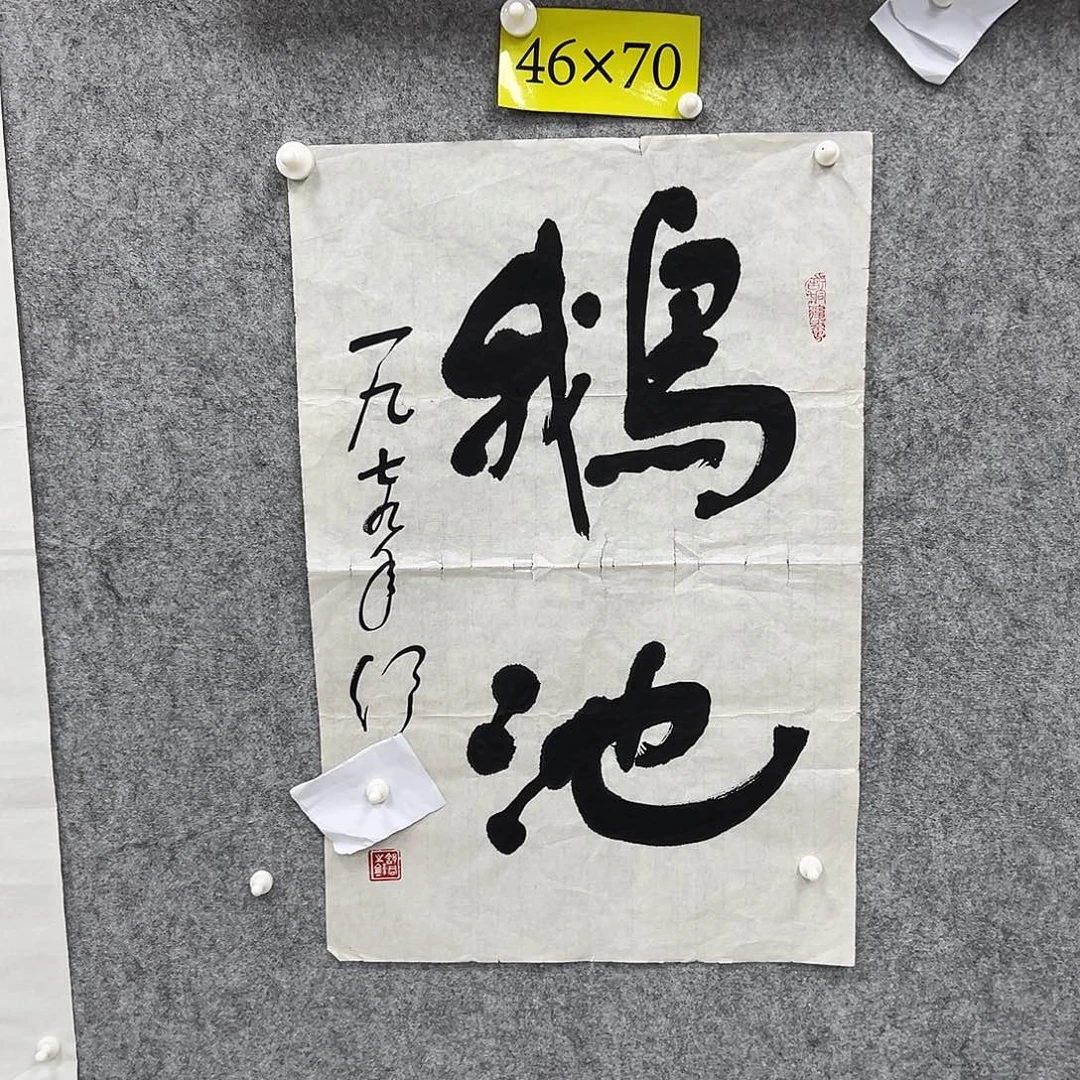 46×70
鵝池
一九七九年